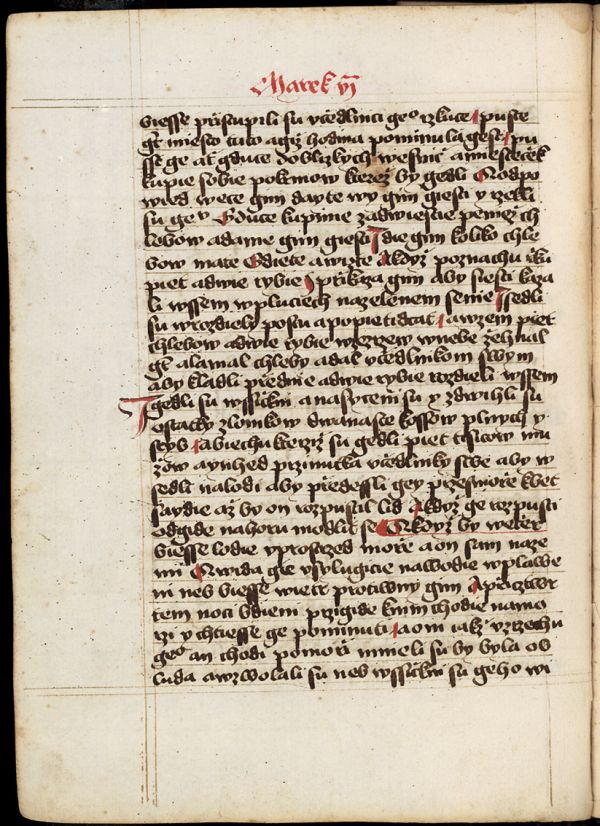 Marek vi
biesse přistupili su včedlnici geo rzkuce puste
gt miesto tuto a giž hodina pominula gest pu
sst ge at gduce do blizkych wesnic a miesteček
kupie sobie pokrmow kterež by gedli Odpo
wied wece gim dayte wy gim giesti y rzekli
su geu Gduce kupime za dwiestie peniez ch
lebow a dame gim giesti I die gim koliko chle
bow mate Gdiete a wizte A když poznachu řku
piet a dwie rybie I přikaza gim aby siesti kaza
li wssem w pluciech na zelenem senie I sedli
su w rozdiely po stu a po pieti dcat a wzem piet
chlebow a dwie rybie wezrzew w nebe žehnal
gt a lamal chleby a dal včedlnikom swym
aby kladli přednie a dwie rybie rozdieli wssem
I gedli su wssickni a nasyceni su y zdwihli su
ostatky zlomkow dwanaste kossow plnych y
ryb a biechu kterziž su gedli piet tisicow mu
žow a ynhed przinutka včedlniky swe aby w
sedli na lodi aby předessli gey přes moře k bet
saydie až by on rozpustil lid A když ge rozpusti
odgide na horu modlit se A když by wečer
biesse lodie v prostrzed moře a on sam na ze
mi A wida ge vsylugicie na wodie w plawe
ni neb biesse wietr protiwny gim A při cztwr
tem noci bdieni przigide k nim chodie na mo
rzi y chtiesse ge pominuti a oni iakž vzrzechu
geo an chodi po moři mnieli su by byla ob
luda a wzwolali su neb wssickni su geho wi